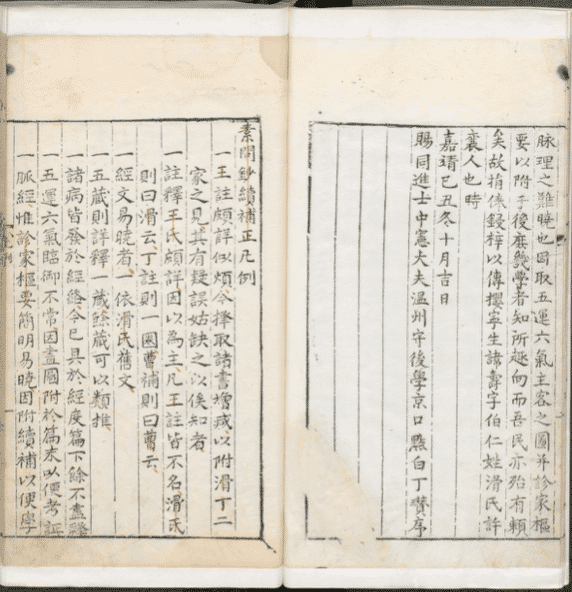 脉理之難曉也因取五運六氣主客之圖并診家樞
要以附于後庶幾學者知所趣向而吾民亦殆有賴
矣故捐俸鋟梓以傳攖寧生諱壽字伯仁姓滑氏許
襄人也時
嘉靖己丑冬十月吉日
賜同進士中憲大夫溫州守後學京口點白丁瓚序
素問鈔續補正凡例
一王註頗詳似煩今擇取諸書增或以附滑丁二
家之見其有疑誤姑缺之以俟知者
一註釋王氏頗詳因以為主凡王註皆不名滑氏
則曰滑云丁註則一圈曹補則曰曹云
一經文易曉者一依滑氏舊文
一五蔵則詳釋一蔵餘蔵可以類推
一諸病皆發於經絡今已具於經度篇下餘不盡釋
一五運六氣臨御不常因畫圖附於篇末以便考詳
一脈經惟診家樞要簡明易曉因附續補以便學